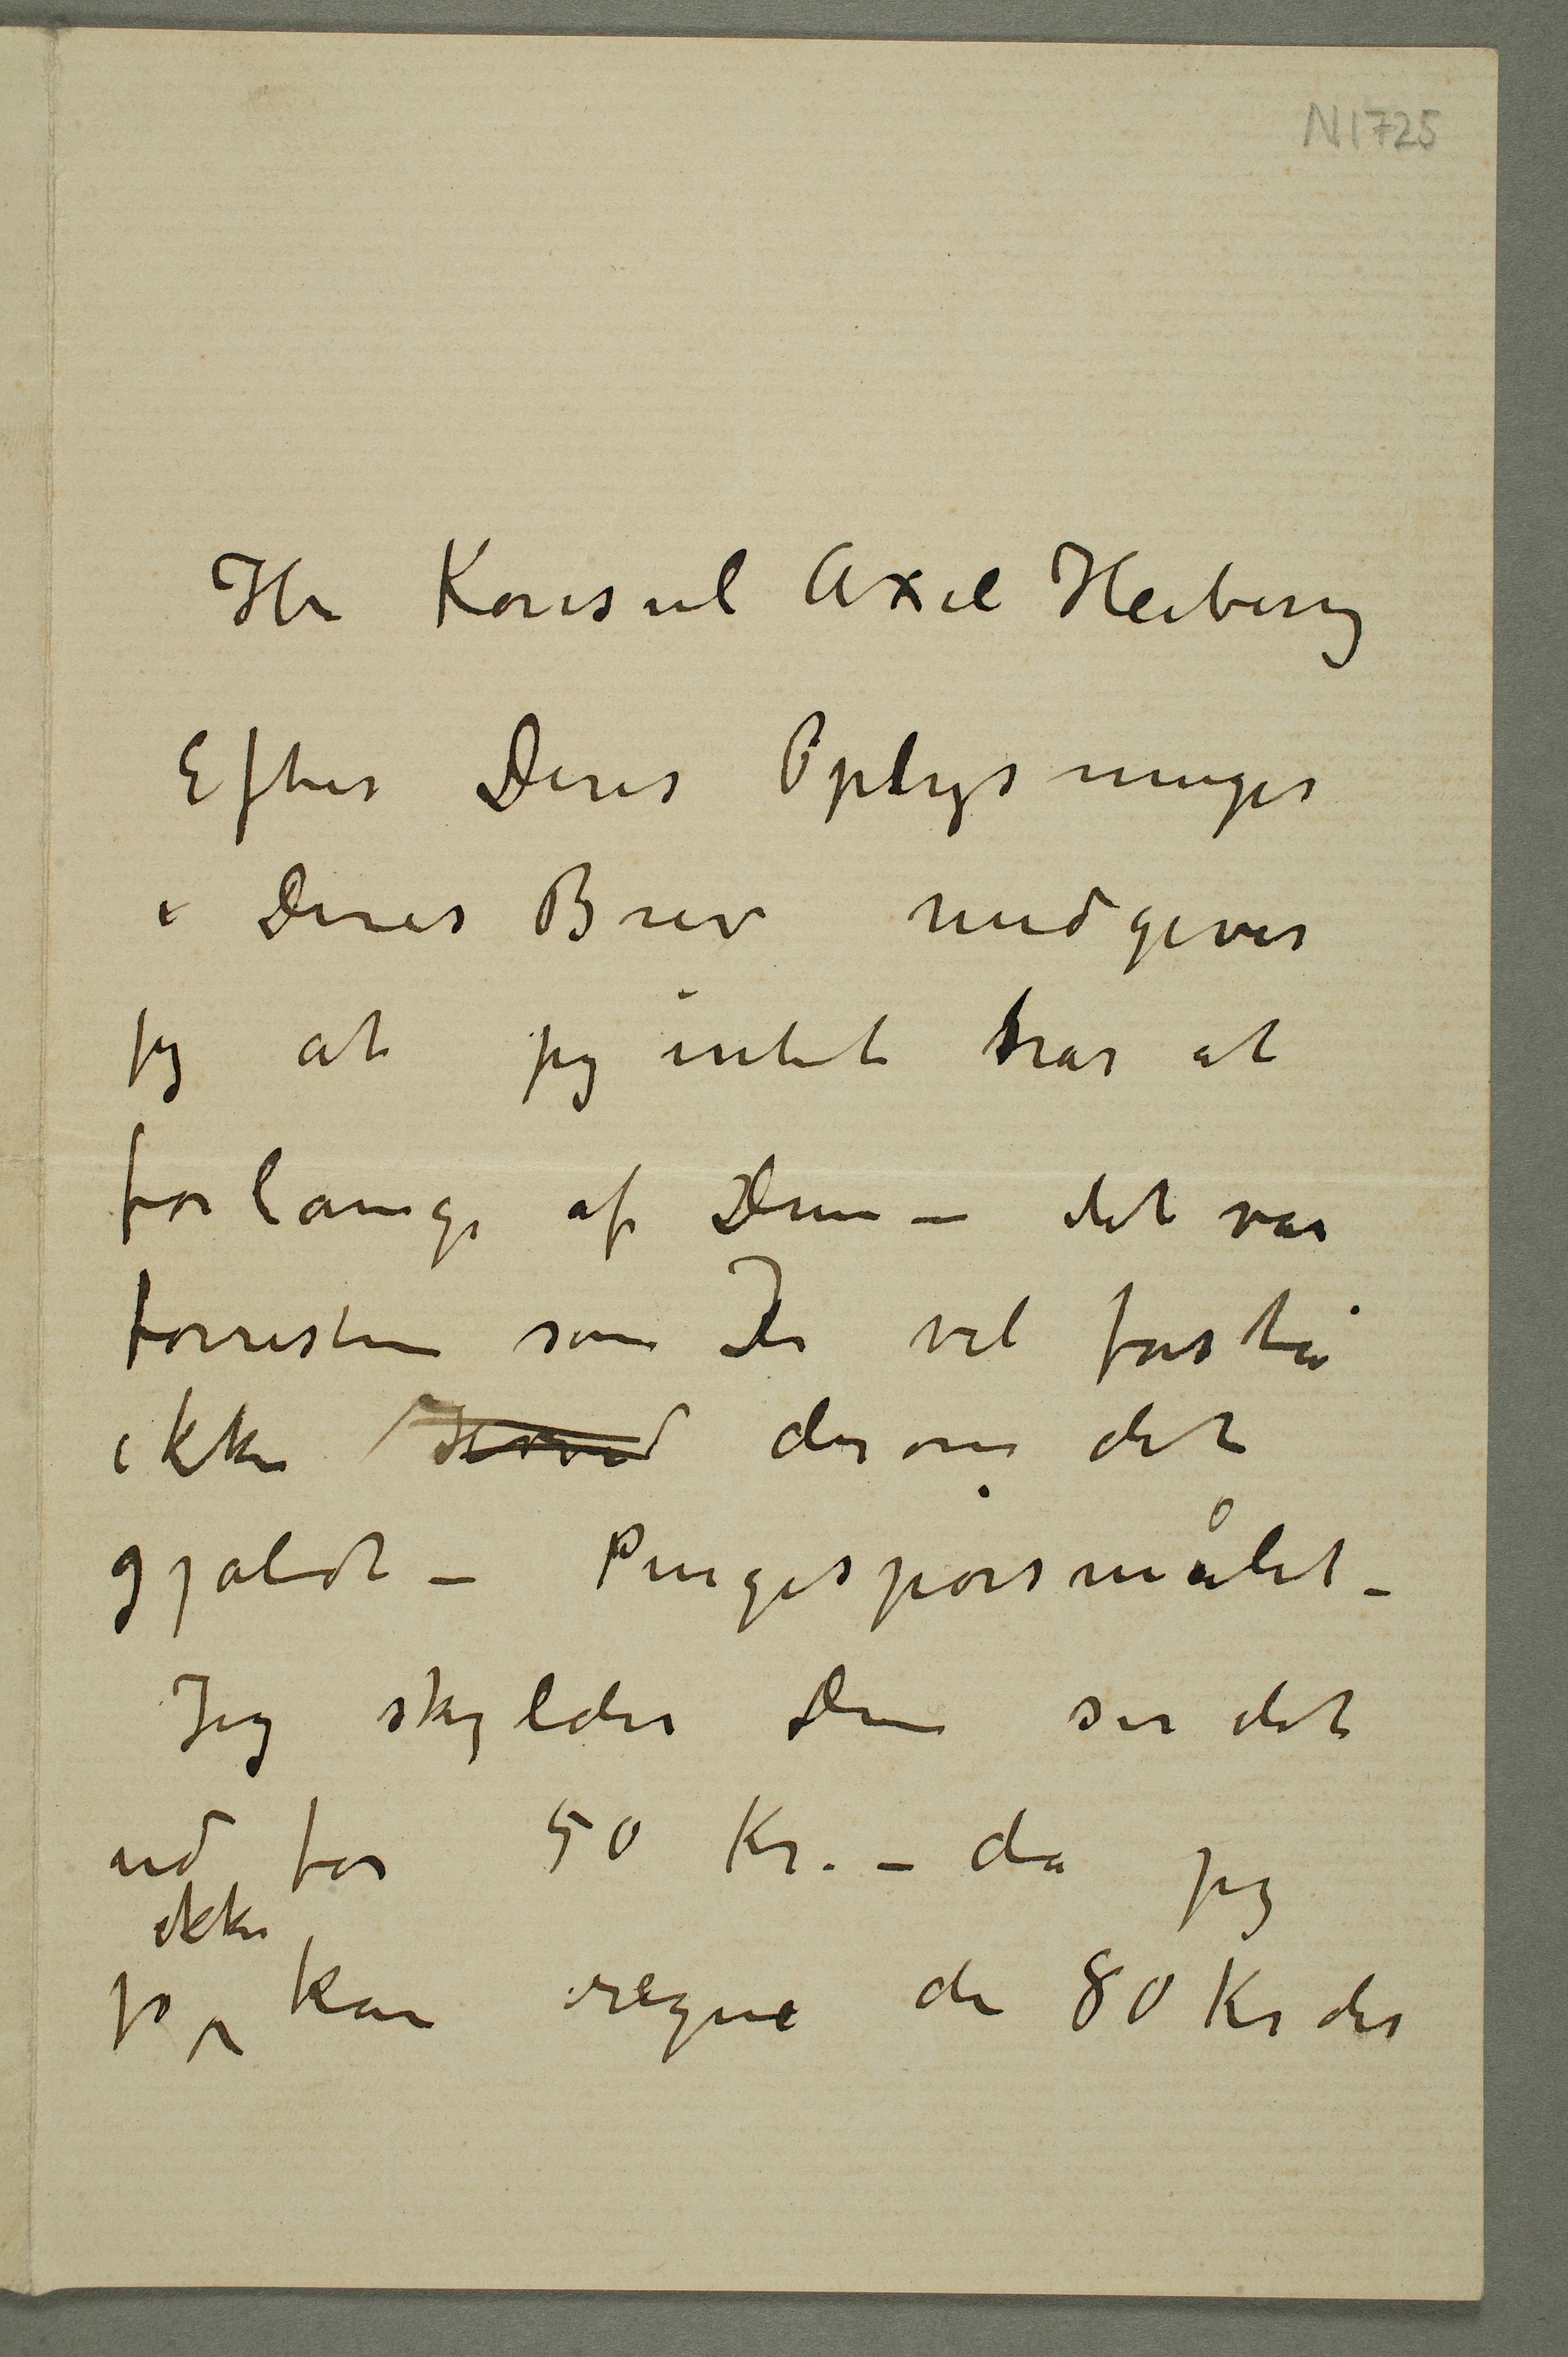 N1725
Hr Konsul Axel Heiberg
Efter Deres Oplysninger
i Deres Brev medgiver
jeg at jeg intet har at
forlange af Dem – det var
forresten som De vel forstår
ikke derom det
gjaldt – Pengespørsmålet –
Jeg skylder Dem ser det
ud for 50 Kr. – da jeg
ikke
jo kan regne de 80 Kr der